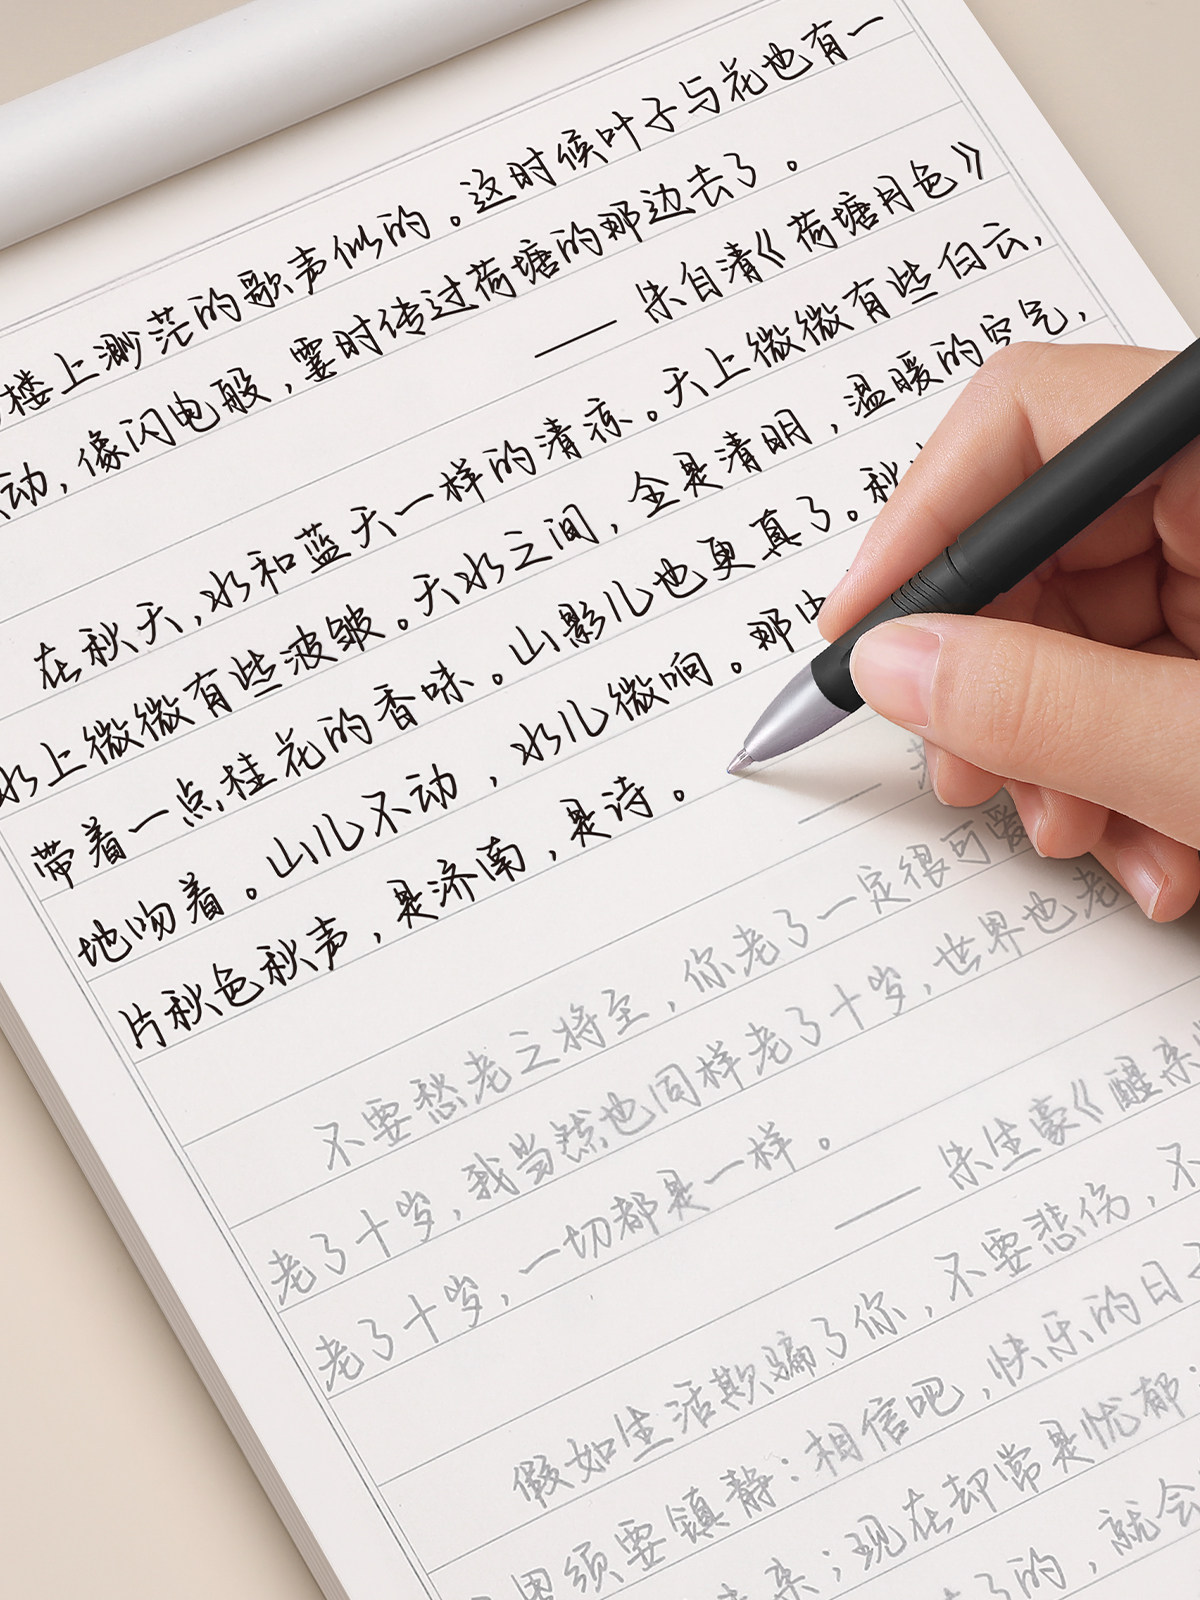 楼上渺茫的歌声似的。这时候叶子与花也有一
动，像闪电般，霎时传过荷塘的那边去了。
——朱自清《荷塘月色》
在秋天，水和蓝天一样的清凉。天上微微有些白云，
水上微微有些波皱。天水之间，全是清明，温暖的空气，
带着一点桂花的香味。山影儿也更真了。秋
地吻着。山儿不动，水儿微响。那中
片秋色秋声，是济南，是诗。
——
不要愁老之将至，你老了一定很可爱
老了十岁，我当然也同样老了十岁，世界也老
老了十岁，一切都是一样。
——朱生豪《醒来
假如生活欺骗了你，不要悲伤，不
须要镇静：相信吧，快乐的日子
来；现在却常是忧郁：
的，就会